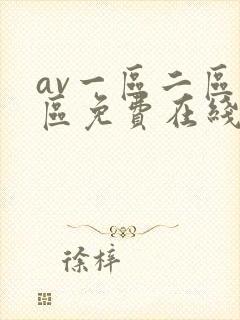 av一區二區
區免費在綫
徐梓